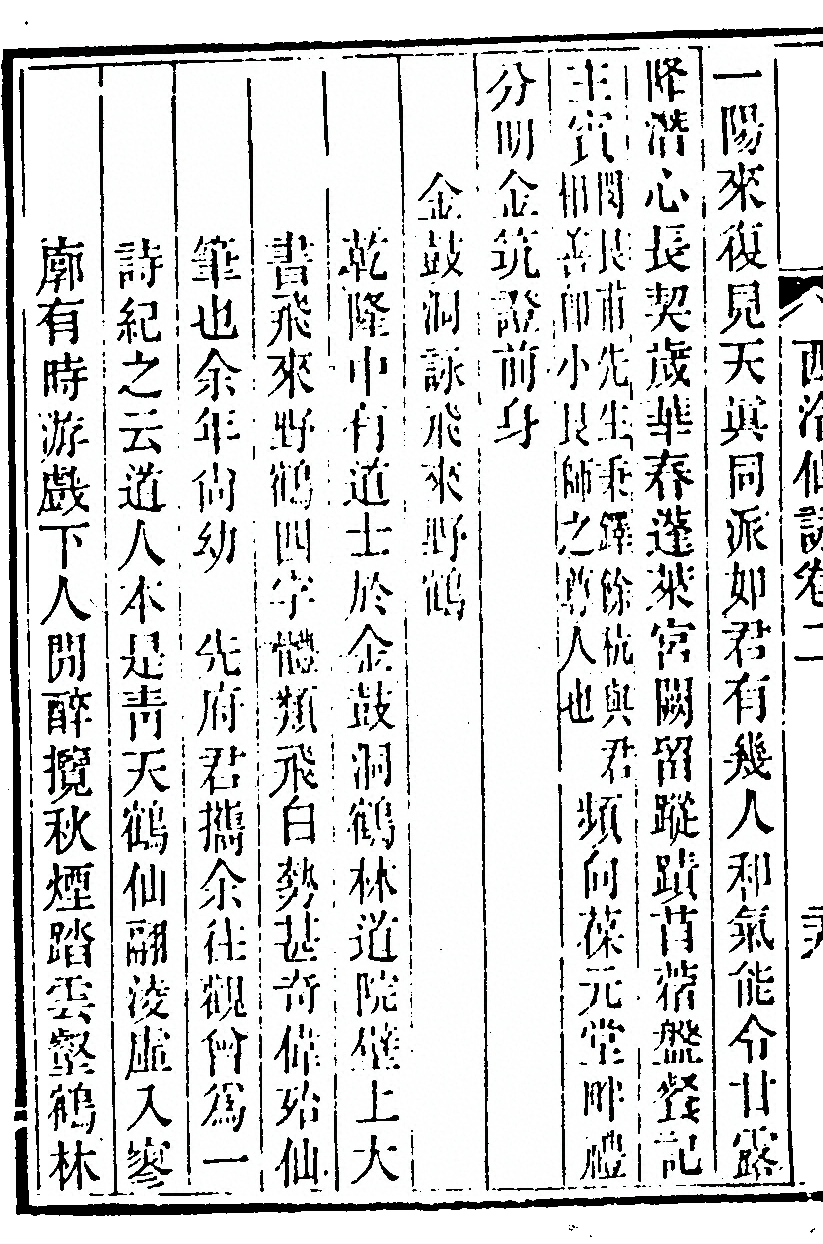 一陽來復見天眞同派如君有幾人和氣能令甘露
降潛心長契歲華春蓬萊宮闕留蹤蹟苜蓿盤餐記
主賓
閔艮甫先生秉鐸餘杭與君
相善卽小艮師之尊人也
頻向葆元堂畔禮
分明金筑證前身
金鼓洞詠飛來野鶴
乾隆中有道士於金鼓洞鶴林道院壁上大
書飛來野鶴四字體類飛白勢甚奇偉殆仙
筆也余年尙幼 先府君攜余往觀曾爲一
詩紀之云道人本是靑天鶴仙翮淩虛入寥
廓有時游戲下人閒醉攬秋煙踏雲壑鶴林